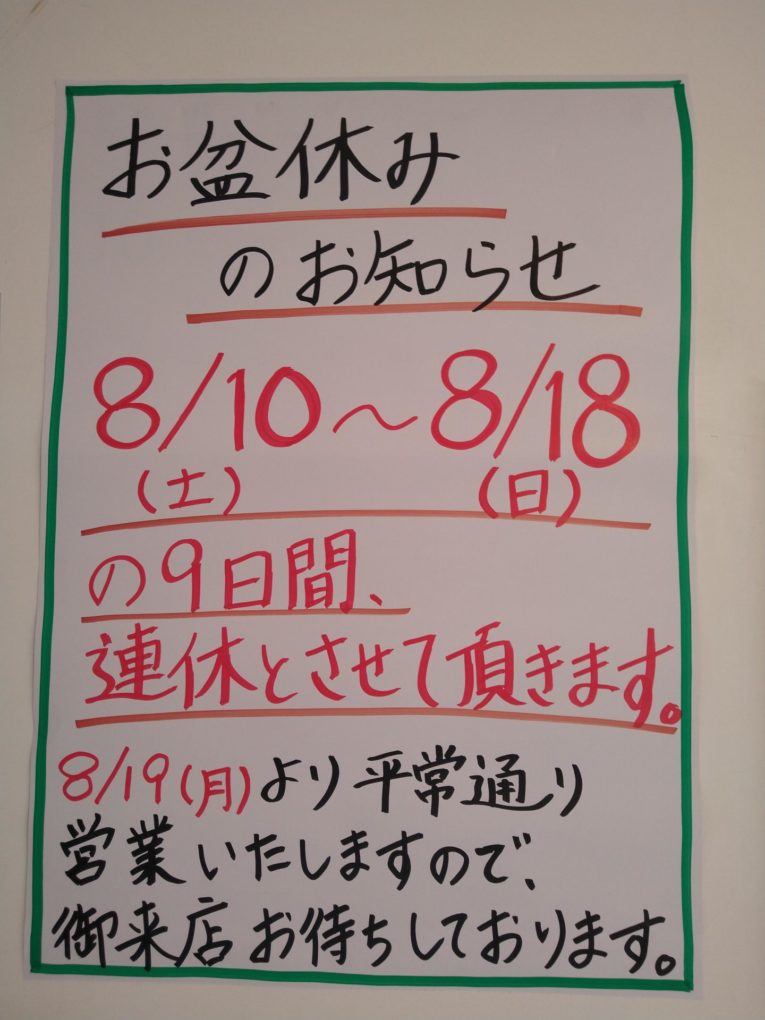 お盆休み
のお知らせ
8/10～8/18
(土) (日)
の9日間、
連休とさせて頂きます。
8/19(月)より平常通り
営業いたしますので、
御来店お待ちしております。